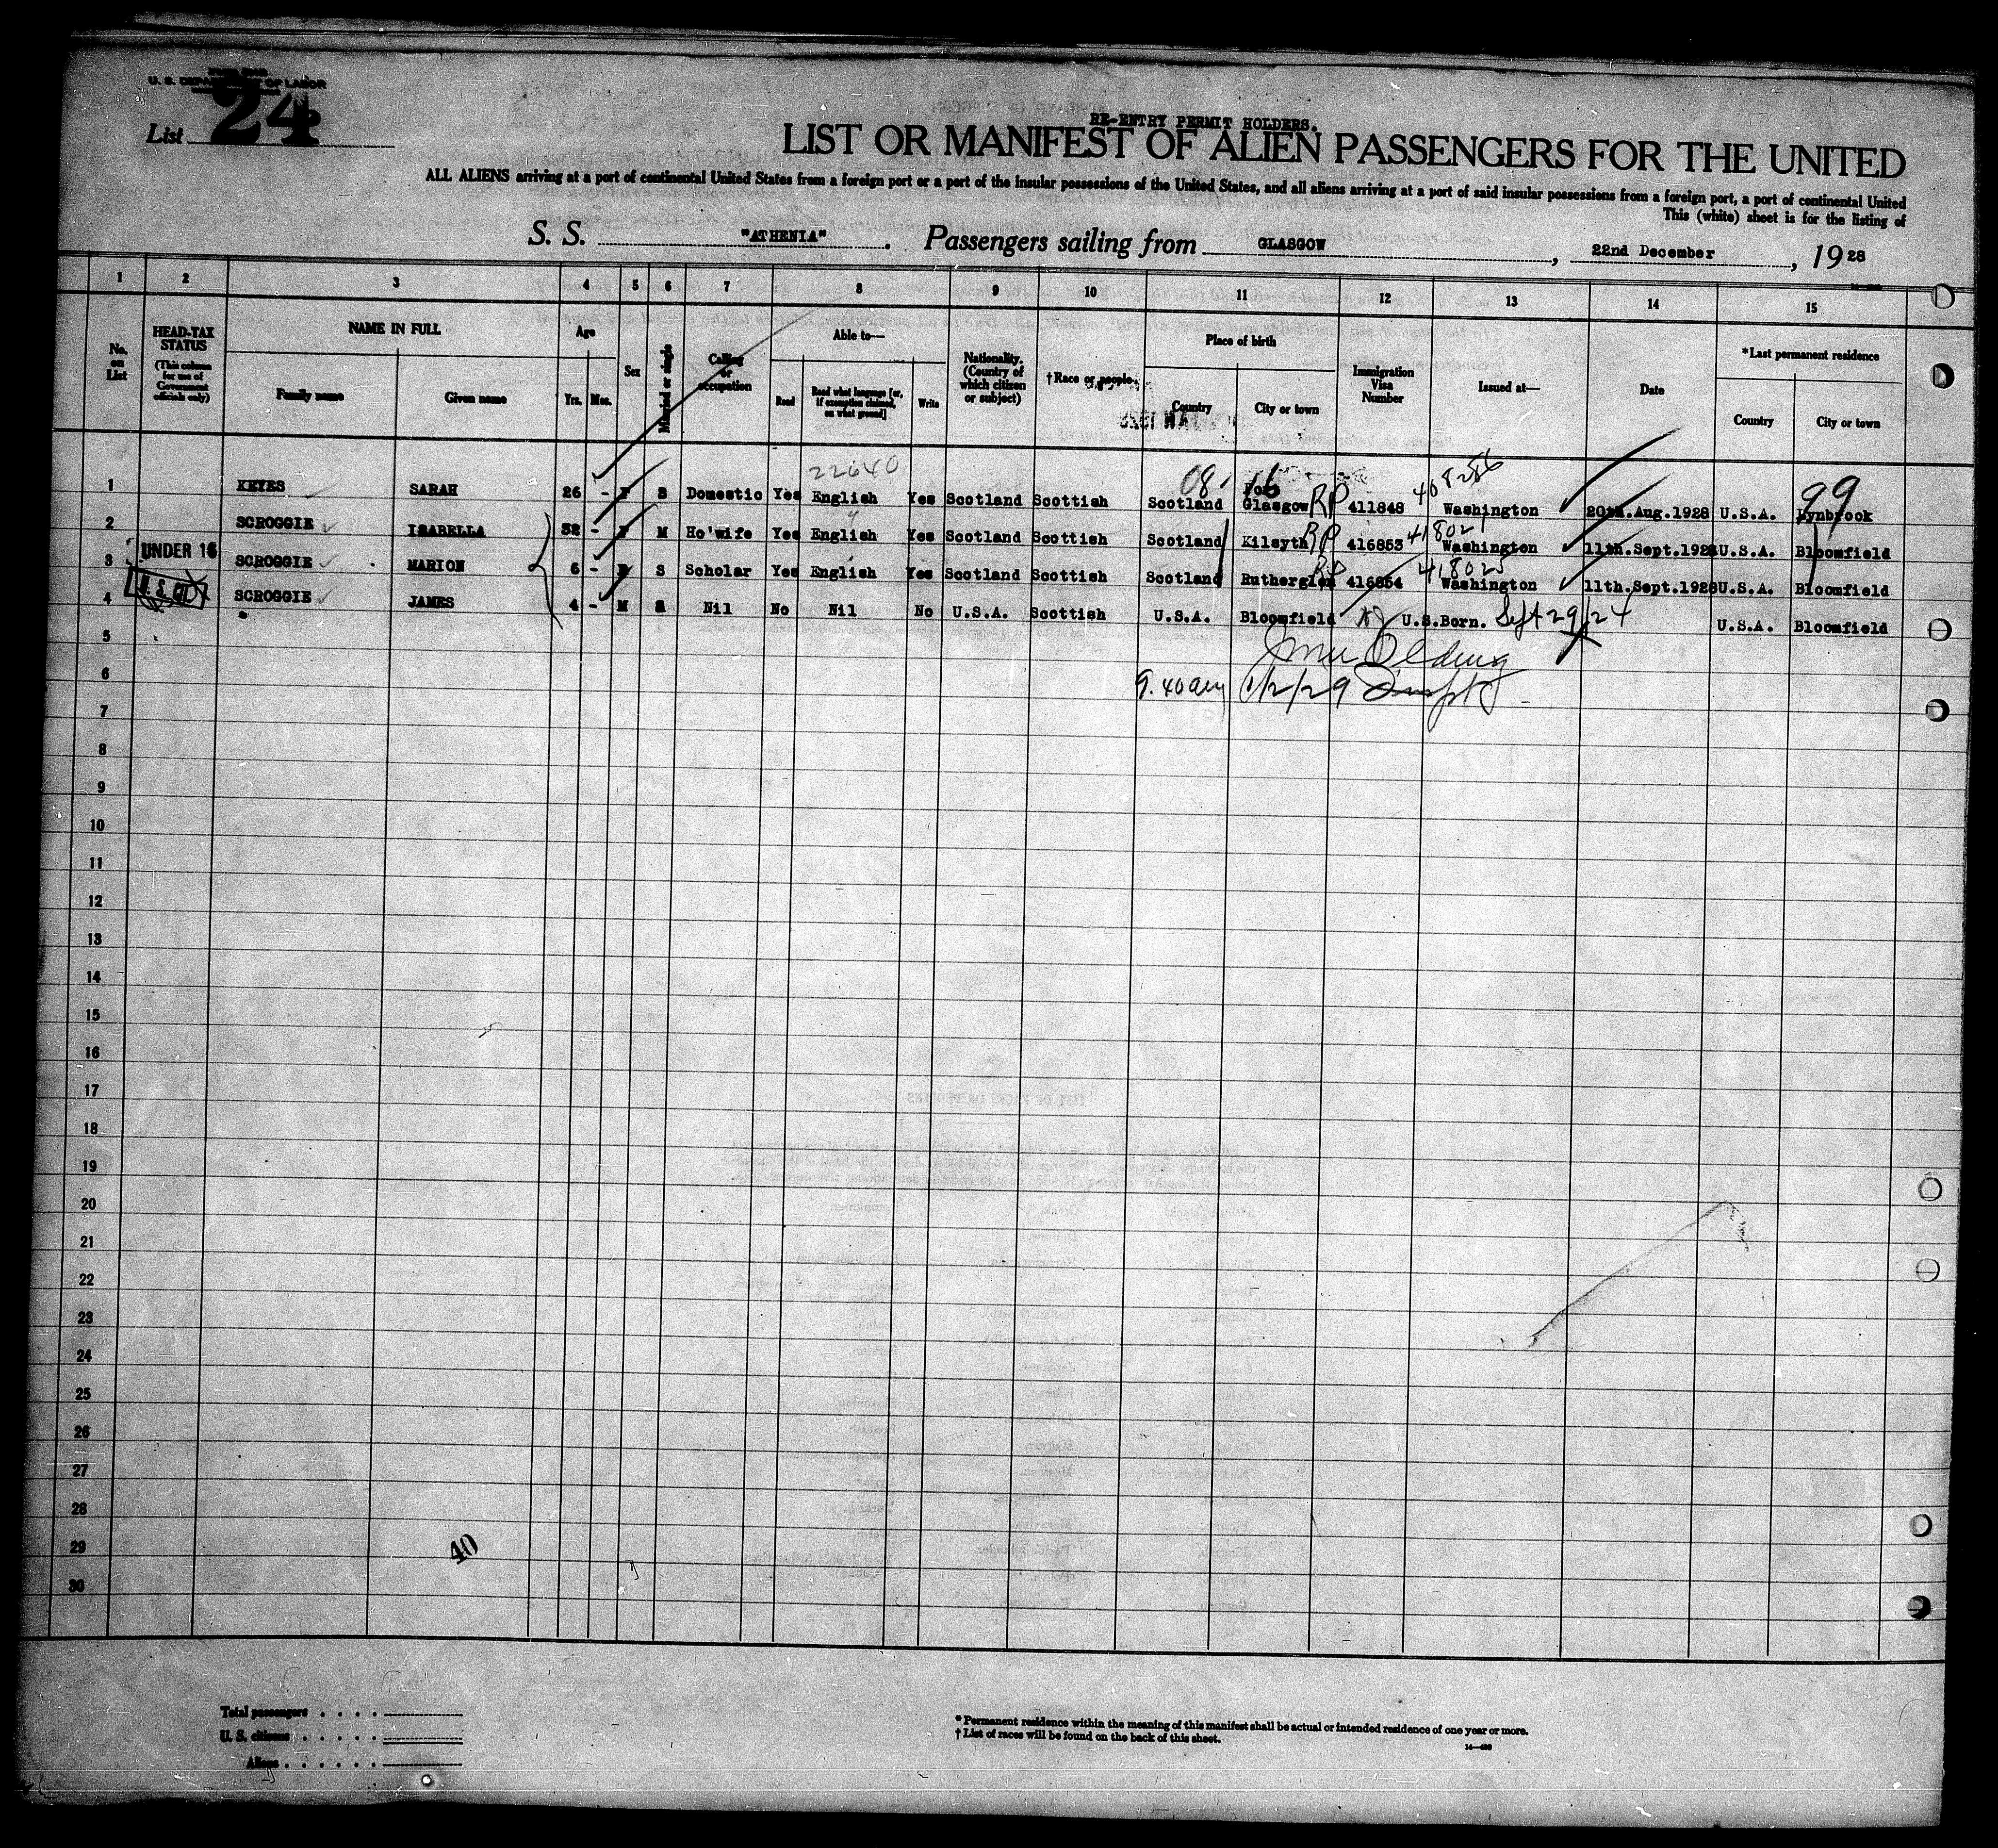 U. S. DEPARTMENT OF LABOR
List 24
RE-ENTRY PERMIT HOLDERS.
LIST OR MANIFEST OF ALIEN PASSENGERS FOR THE UNITED
ALL ALIENS arriving at a port of continental United States from a foreign port or a port of the insular possessions of the United States, and all aliens arriving at a port of said insular possessions from a foreign port, a port of continental United
This (white) sheet is for the listing of
S. S. "ATHENIA". Passengers sailing from GLASGOW, 22nd December, 1928
1 2 3 4 5 6 7 8 9 10 11 12 13 14 15
No. on List
HEAD-TAX STATUS (This column for use of Government officials only)
NAME IN FULL
Family name Given name
Age
Yrs. Mos.
Sex
Married or single
Calling or occupation
Able to—
Read Read what language [or, if exemption claimed, on what ground] Write
Nationality. (Country of which citizen or subject)
†Race or people
Place of birth
Country City or town
Immigration Visa Number
Issued at—
Date
*Last permanent residence
Country City or town
22640
08 16 408256 99
1 KEYES SARAH 26 - F S Domestic Yes English Yes Scotland Scottish Scotland Glasgow RP 411848 Washington 20th.Aug.1928 U.S.A. Lynbrook
41802
2 SCROGGIE ISABELLA 32 - F M Ho'wife Yes English Yes Scotland Scottish Scotland Kilsyth RP 416853 Washington 11th.Sept.1928 U.S.A. Bloomfield
418025
3 UNDER 16 SCROGGIE MARION 6 - F S Scholar Yes English Yes Scotland Scottish Scotland Rutherglen RP 416854 Washington 11th.Sept.1928 U.S.A. Bloomfield
4 SCROGGIE JAMES 4 - M S Nil No Nil No U.S.A. Scottish U.S.A. Bloomfield U.S.Born. Sept 29/24 U.S.A. Bloomfield
5
6 9.40am 1/2/29
7
8
9
10
11
12
13
14
15
16
17
18
19
20
21
22
23
24
25
26
27
28
29
30
40
Total passengers
U. S. citizens
Aliens
* Permanent residence within the meaning of this manifest shall be actual or intended residence of one year or more.
† List of races will be found on the back of this sheet.